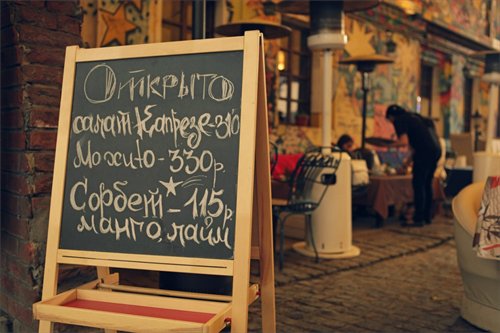 Открыто
салат Капрезе-310
Мохито-330р.
Сорбет -115р
манго, лайм